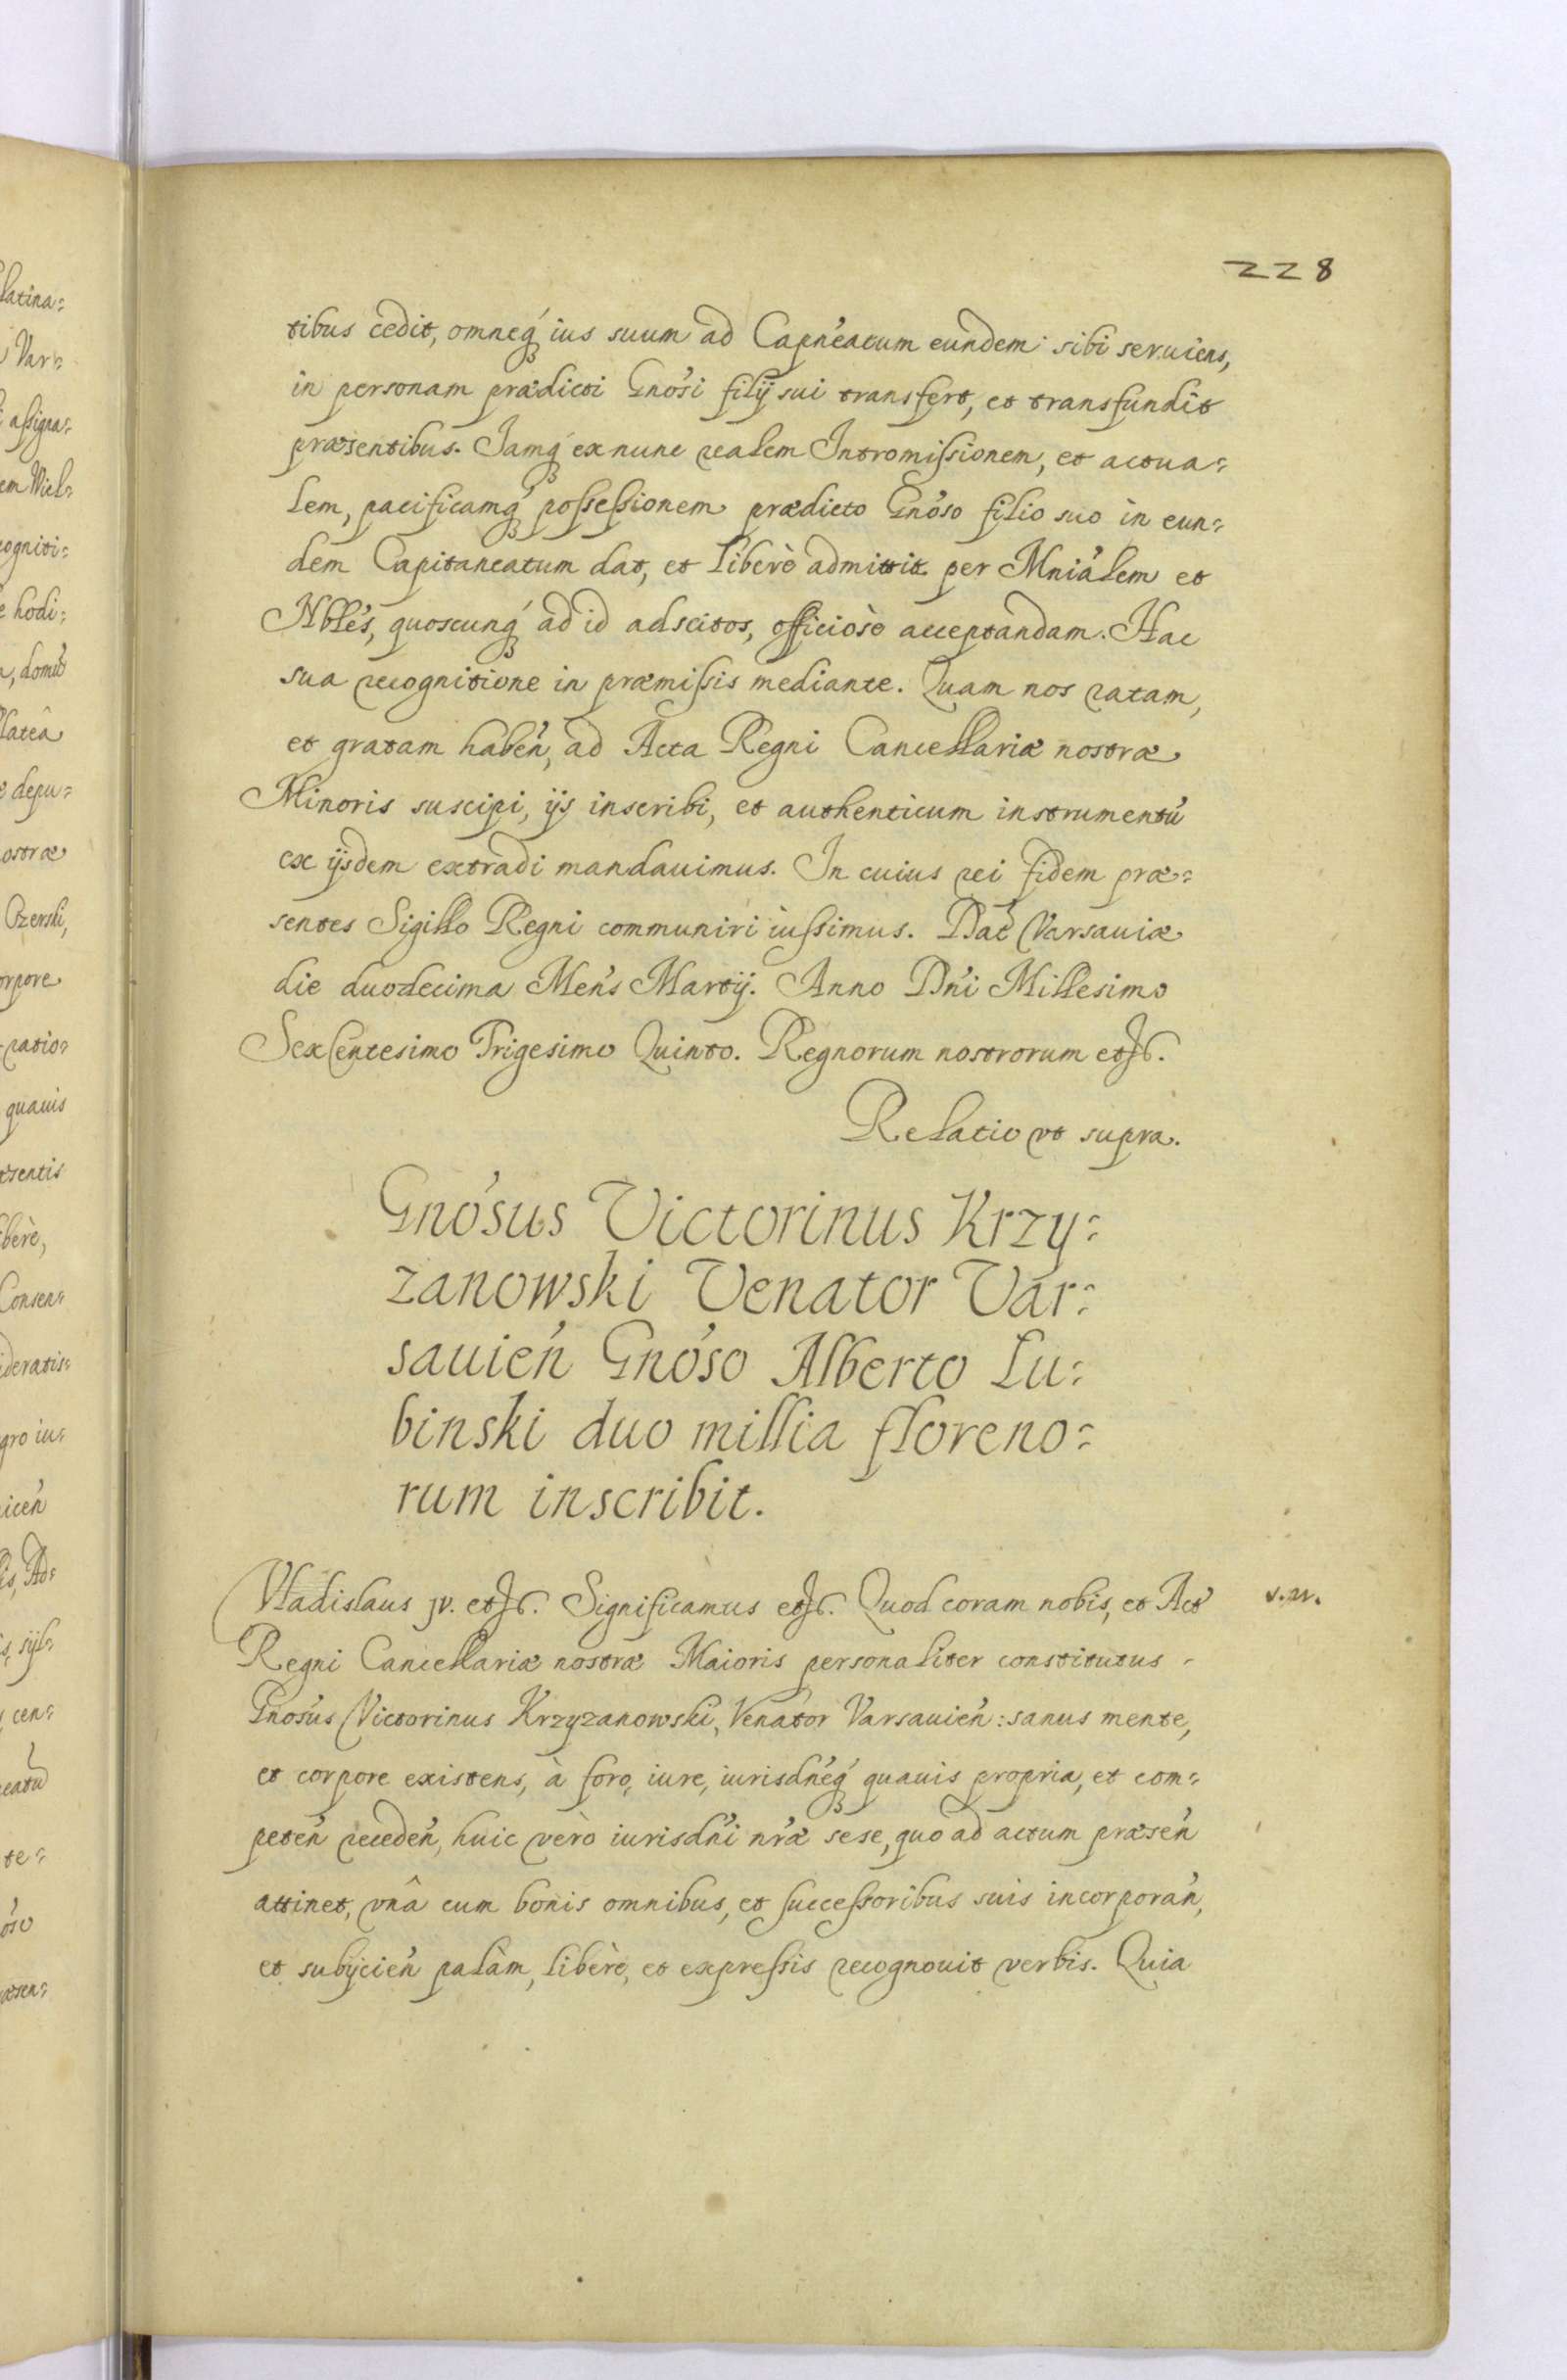 228
tibus cedit, omneq́ꝫ ius suum ad Capn̓eatum eundem sibi seruiens,
in personam prædicti Gno̓si filij sui transfert, et transfundit
præsentibus. Iamq́ꝫ ex nunc realem Intromißionem, et actua=
lem, pacificamq́ꝫ poßeßionem prædicto Gno̓so filio suo in eun=
dem Capitaneatum dat, et liberè admittit per Mnia̓lem et
Nble̓s, quoscunq́ꝫ ad id adscitos, officiosè acceptandam. Hac
sua recognitione in præmißis mediante. Quam nos ratam,
et gratam haben̓, ad Acta Regni Cancellariæ nostræ
Minoris suscipi, ijs inscribi, et authenticum instrumentu̓
ex ijsdem extradi mandauimus. In cuius rei fidem præ=
sentes Sigillo Regni communiri iußimus. Dat̓ Varsauiæ
die duodecima Men̓s Martij. Anno Dn̓i Millesimo
Sexcentesimo Trigesimo Quinto. Regnorum nostrorum etc.
Relatio vt supra.
Gno̓sus Victorinus Krzy=
zanowski Venator Var=
sauien̓ Gno̓so Alberto Lu=
binski duo millia floreno=
rum inscribit.
Vladislaus jv. etc. Significamus etc. Quod coram nobis, et Act̓
Regni Cancellariæ nostræ Maioris personaliter constitutus
Gno̓sus Victorinus Krzyzanowski, Venator Varsauien̓: sanus mente,
et corpore existens, à foro, iure, iurisdn̓eq́ꝫ quauis propria, et com=
peten̓ receden̓, huic vèro iurisdn̓i nr̓æ sese, quo ad actum præsen̓
attinet, vnâ cum bonis omnibus, et succeßoribus suis incorporan̓,
et subijcien̓ palàm, liberè, et expreßis recognouit verbis. Quia